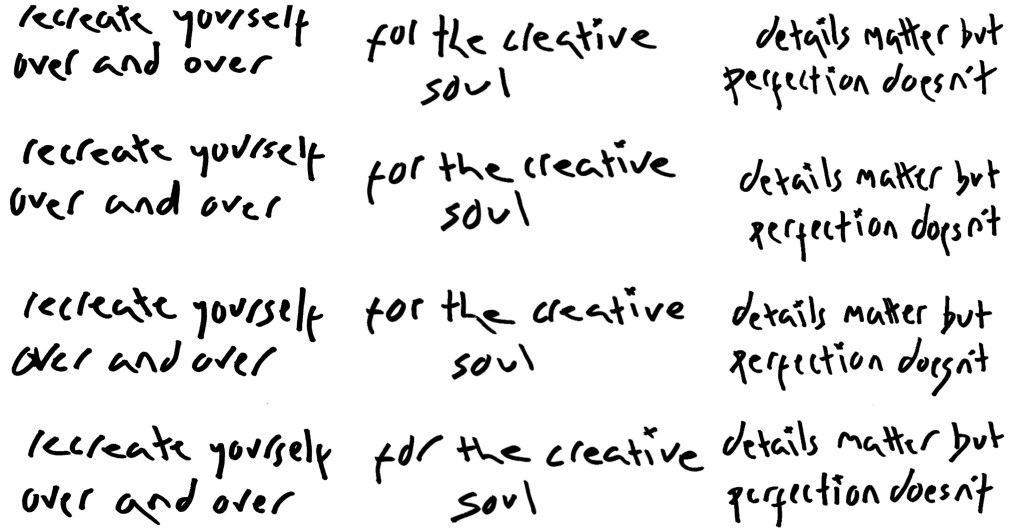 recreate yourself
over and over
for the creative
soul
details matter but
perfection doesn't
recreate yourself
over and over
for the creative
soul
details matter but
perfection doesn't
recreate yourself
over and over
for the creative
soul
details matter but
perfection doesn't
recreate yourself
over and over
for the creative
soul
details matter but
perfection doesn't